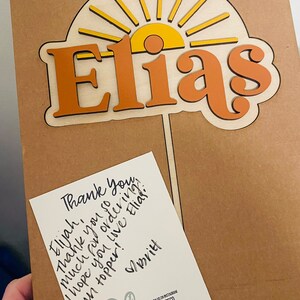 Elias
Thank You
Elijah,
thank you so
much for ordering!
I hope you love Elias'
topper!
♡ Britt